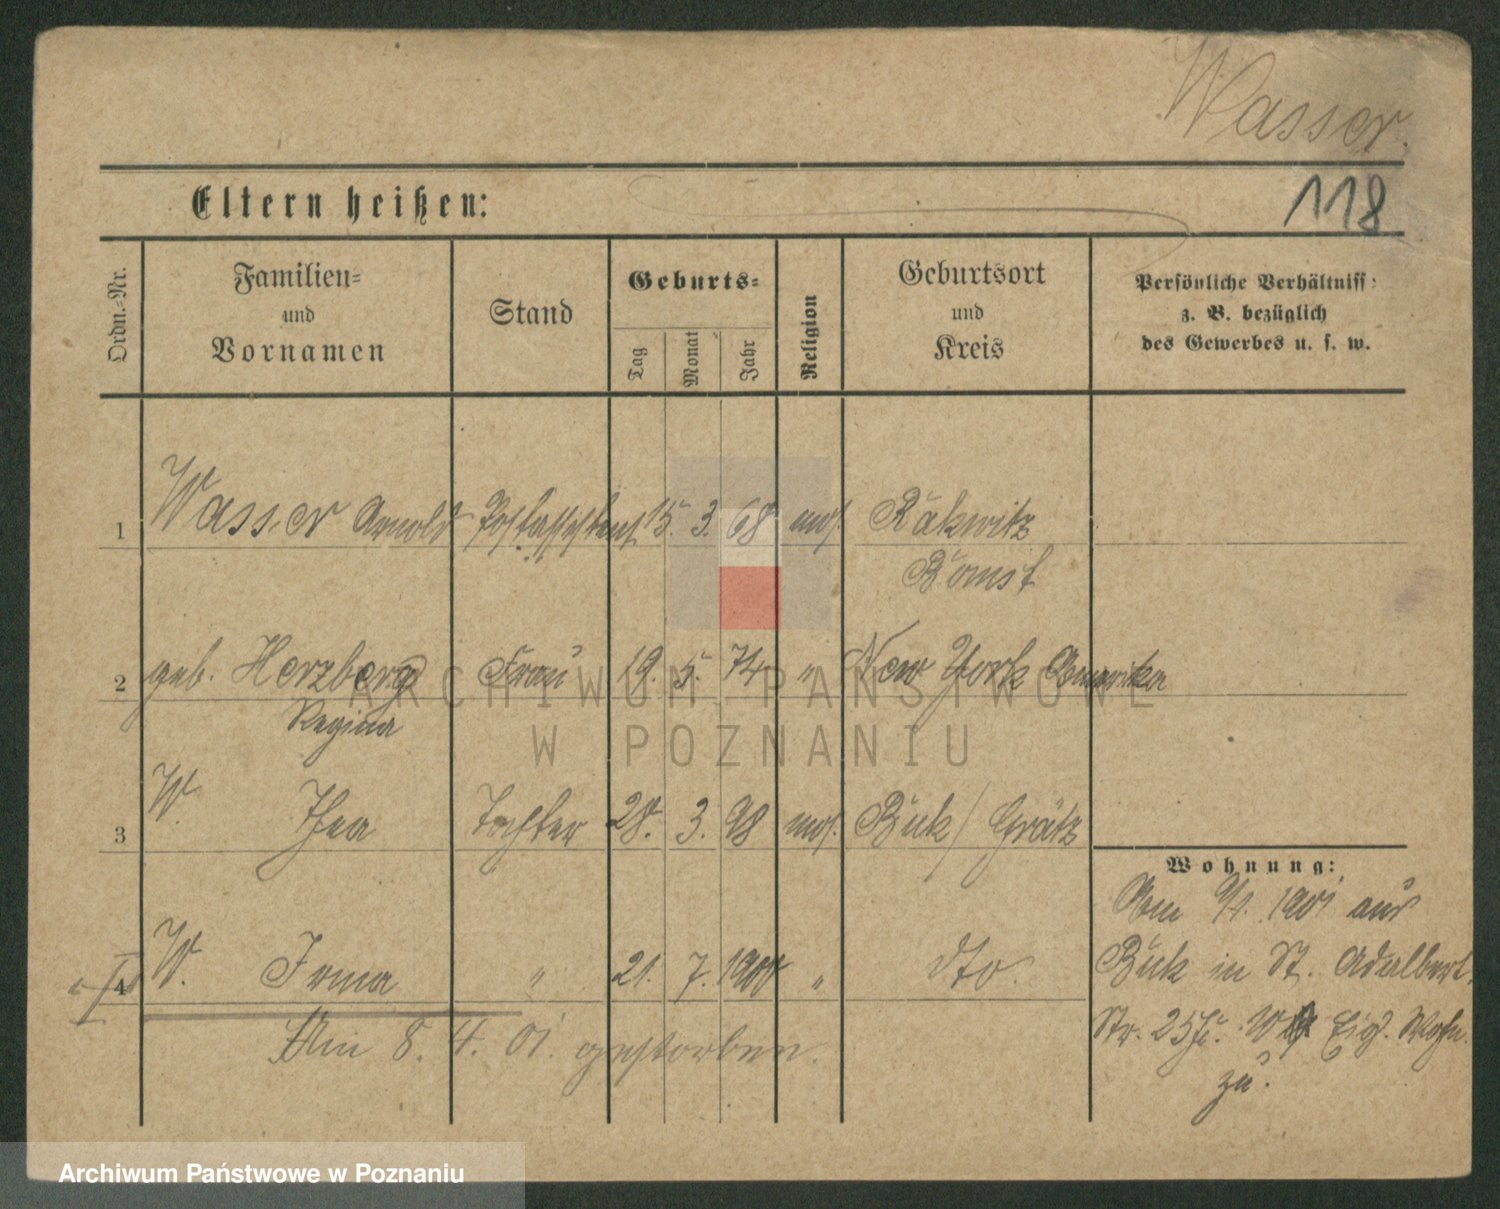 Wasser.
118
Eltern heißen:
Ordn.-Nr.
Familien-
und
Vornamen
Stand
Geburts-
Tag
Monat
Jahr
Religion
Geburtsort
und
Kreis
Persönliche Verhältniss
z. B. bezüglich
des Gewerbes u. s. w.
1 Wasser Arnold Postassistent 15. 3. 68 mos. Rakwitz
Bomst
2 geb. Herzberg Frau 19. 5. 74 " New York Amerika
Regina
3 W. Thea Tochter 28. 3. 98 mos. Buk / Grätz
4 W. Irma " 21. 7. 1900 " dto.
Am 8. 4. 01. gestorben.
Wohnung:
Am 9/1. 1901 aus
Buk in St. Adalbert
Str. 25 Eig. Wohn.
zu.
ARCHIWUM PAŃSTWOWE
W POZNANIU
Archiwum Państwowe w Poznaniu